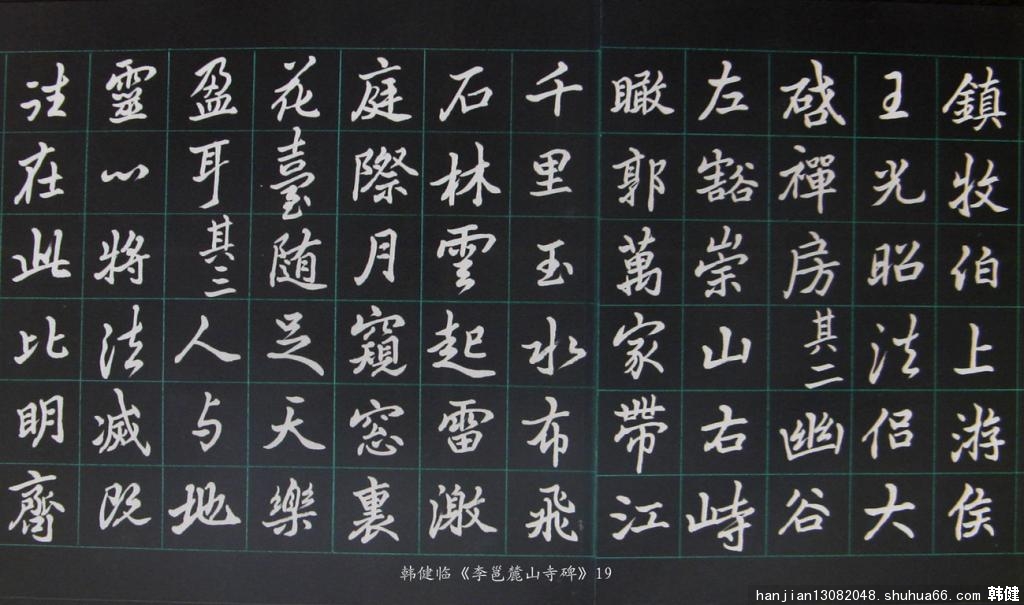 鎮牧伯上游侯
王光昭法侣大
啓禪房其二幽谷
左豁崇山右峙
瞰郭萬家帶江
千里玉水布飛
石林雲起雷激
庭際月窺窓裏
花臺随足天樂
盈耳其三人与地
靈心將法滅既
註在此比明齊
韩健临《李邕麓山寺碑》19
hanjian13082048.shuhua66.com 韩健